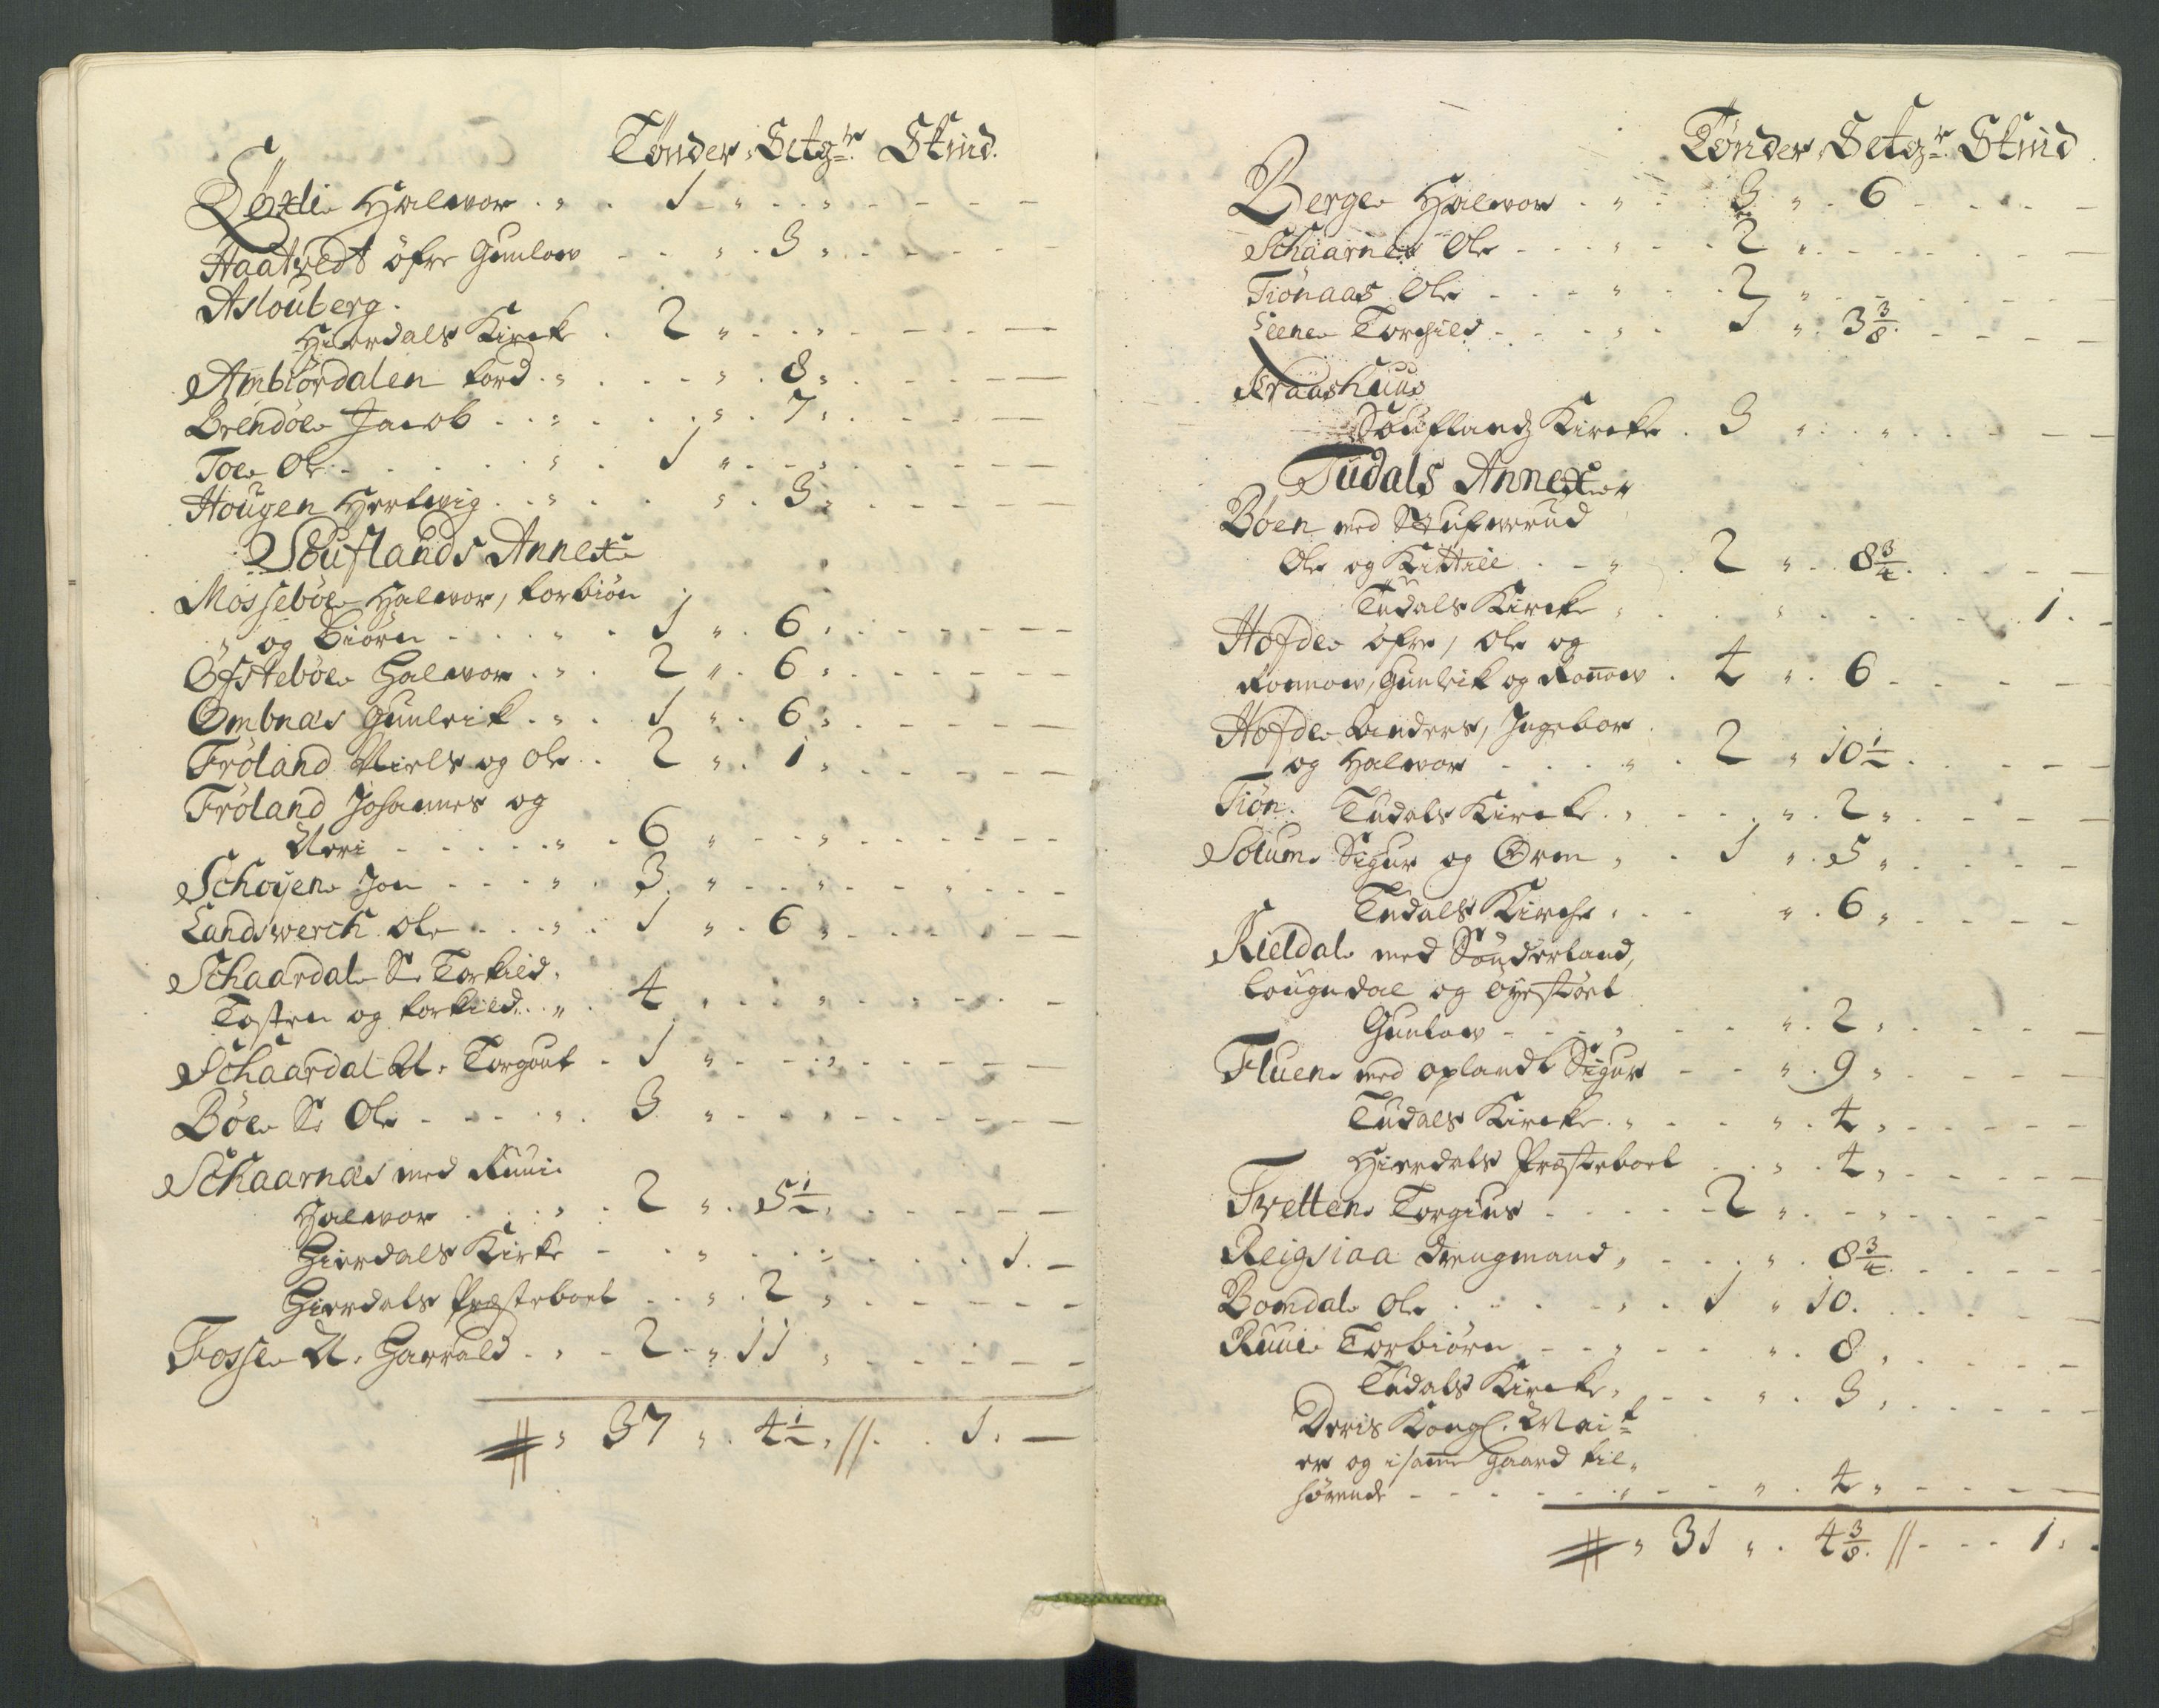 Tønder. Setgr. Skind.
Løxli Halwor. 1
Haatvedt öfre Gunlow 3
Aslouberg.
Hierdals Kircke 2
Ambiördalen tord. 8
Brendöe Jacob 7
Toe Ole 1
Hougen Hertwig 3
Souflands Annex
Mossebøe Halwor, torbiön
og Biörn 1 6
Öfstebøe Halwor 2 6
Ombnæs Gunleik 1 6
Fröland Niels og Ole 2 1
Fröland Johannes og
Neri 6
Schoyen Jon 3
Landsverch Ole 1 6
Schaardal S. Torkild,
Tosten og torkild 4
Schaardal N. Torgout 1
Böe S. Ole 3
Schaarnæs med Ruui
Halwor 2 5½
Hierdals Kirke 1
Hierdals Præsteboel 2
Fosse N. Harrald 2 11
37 4½ // 1
Tønder. Setgr. Skind.
Berge Halwor 3 6
Schaarnes Ole 2
Tiönaas Ole 2
Leene Torgild 1 3 3/8
Kraashuus
Souflandz Kircke 3
Tudals Annexer
Böen med Stufwerud
Ole og Kittill 2 8¾
Tudals Kircke 1
Hofde öfre, Ole og
Ronnow, Gunleik og Ronnow 4 6
Hofde Anders, Ingebor
og Halwor 2 10½
Tiön. Tudals Kircke 2
Solum Sigur og Orm 1 5
Tudals Kirche 6
Kieldal med Sønderland,
Lougudal og Øyestöel
Gunlow 2
Fluen med oplandt Sigur 9
Tudals Kircke 4
Hierdals Præsteboel 4
Tvetten Torgius 2
Reigsiaa Drengmand 8¾
Bomdal Ole 1 10
Ruui Torbiörn 8
Tudals Kircke 3
Deris Kongl. Mait
er og i samme Gaard til,
hørende 4
31 4 3/8 // 1